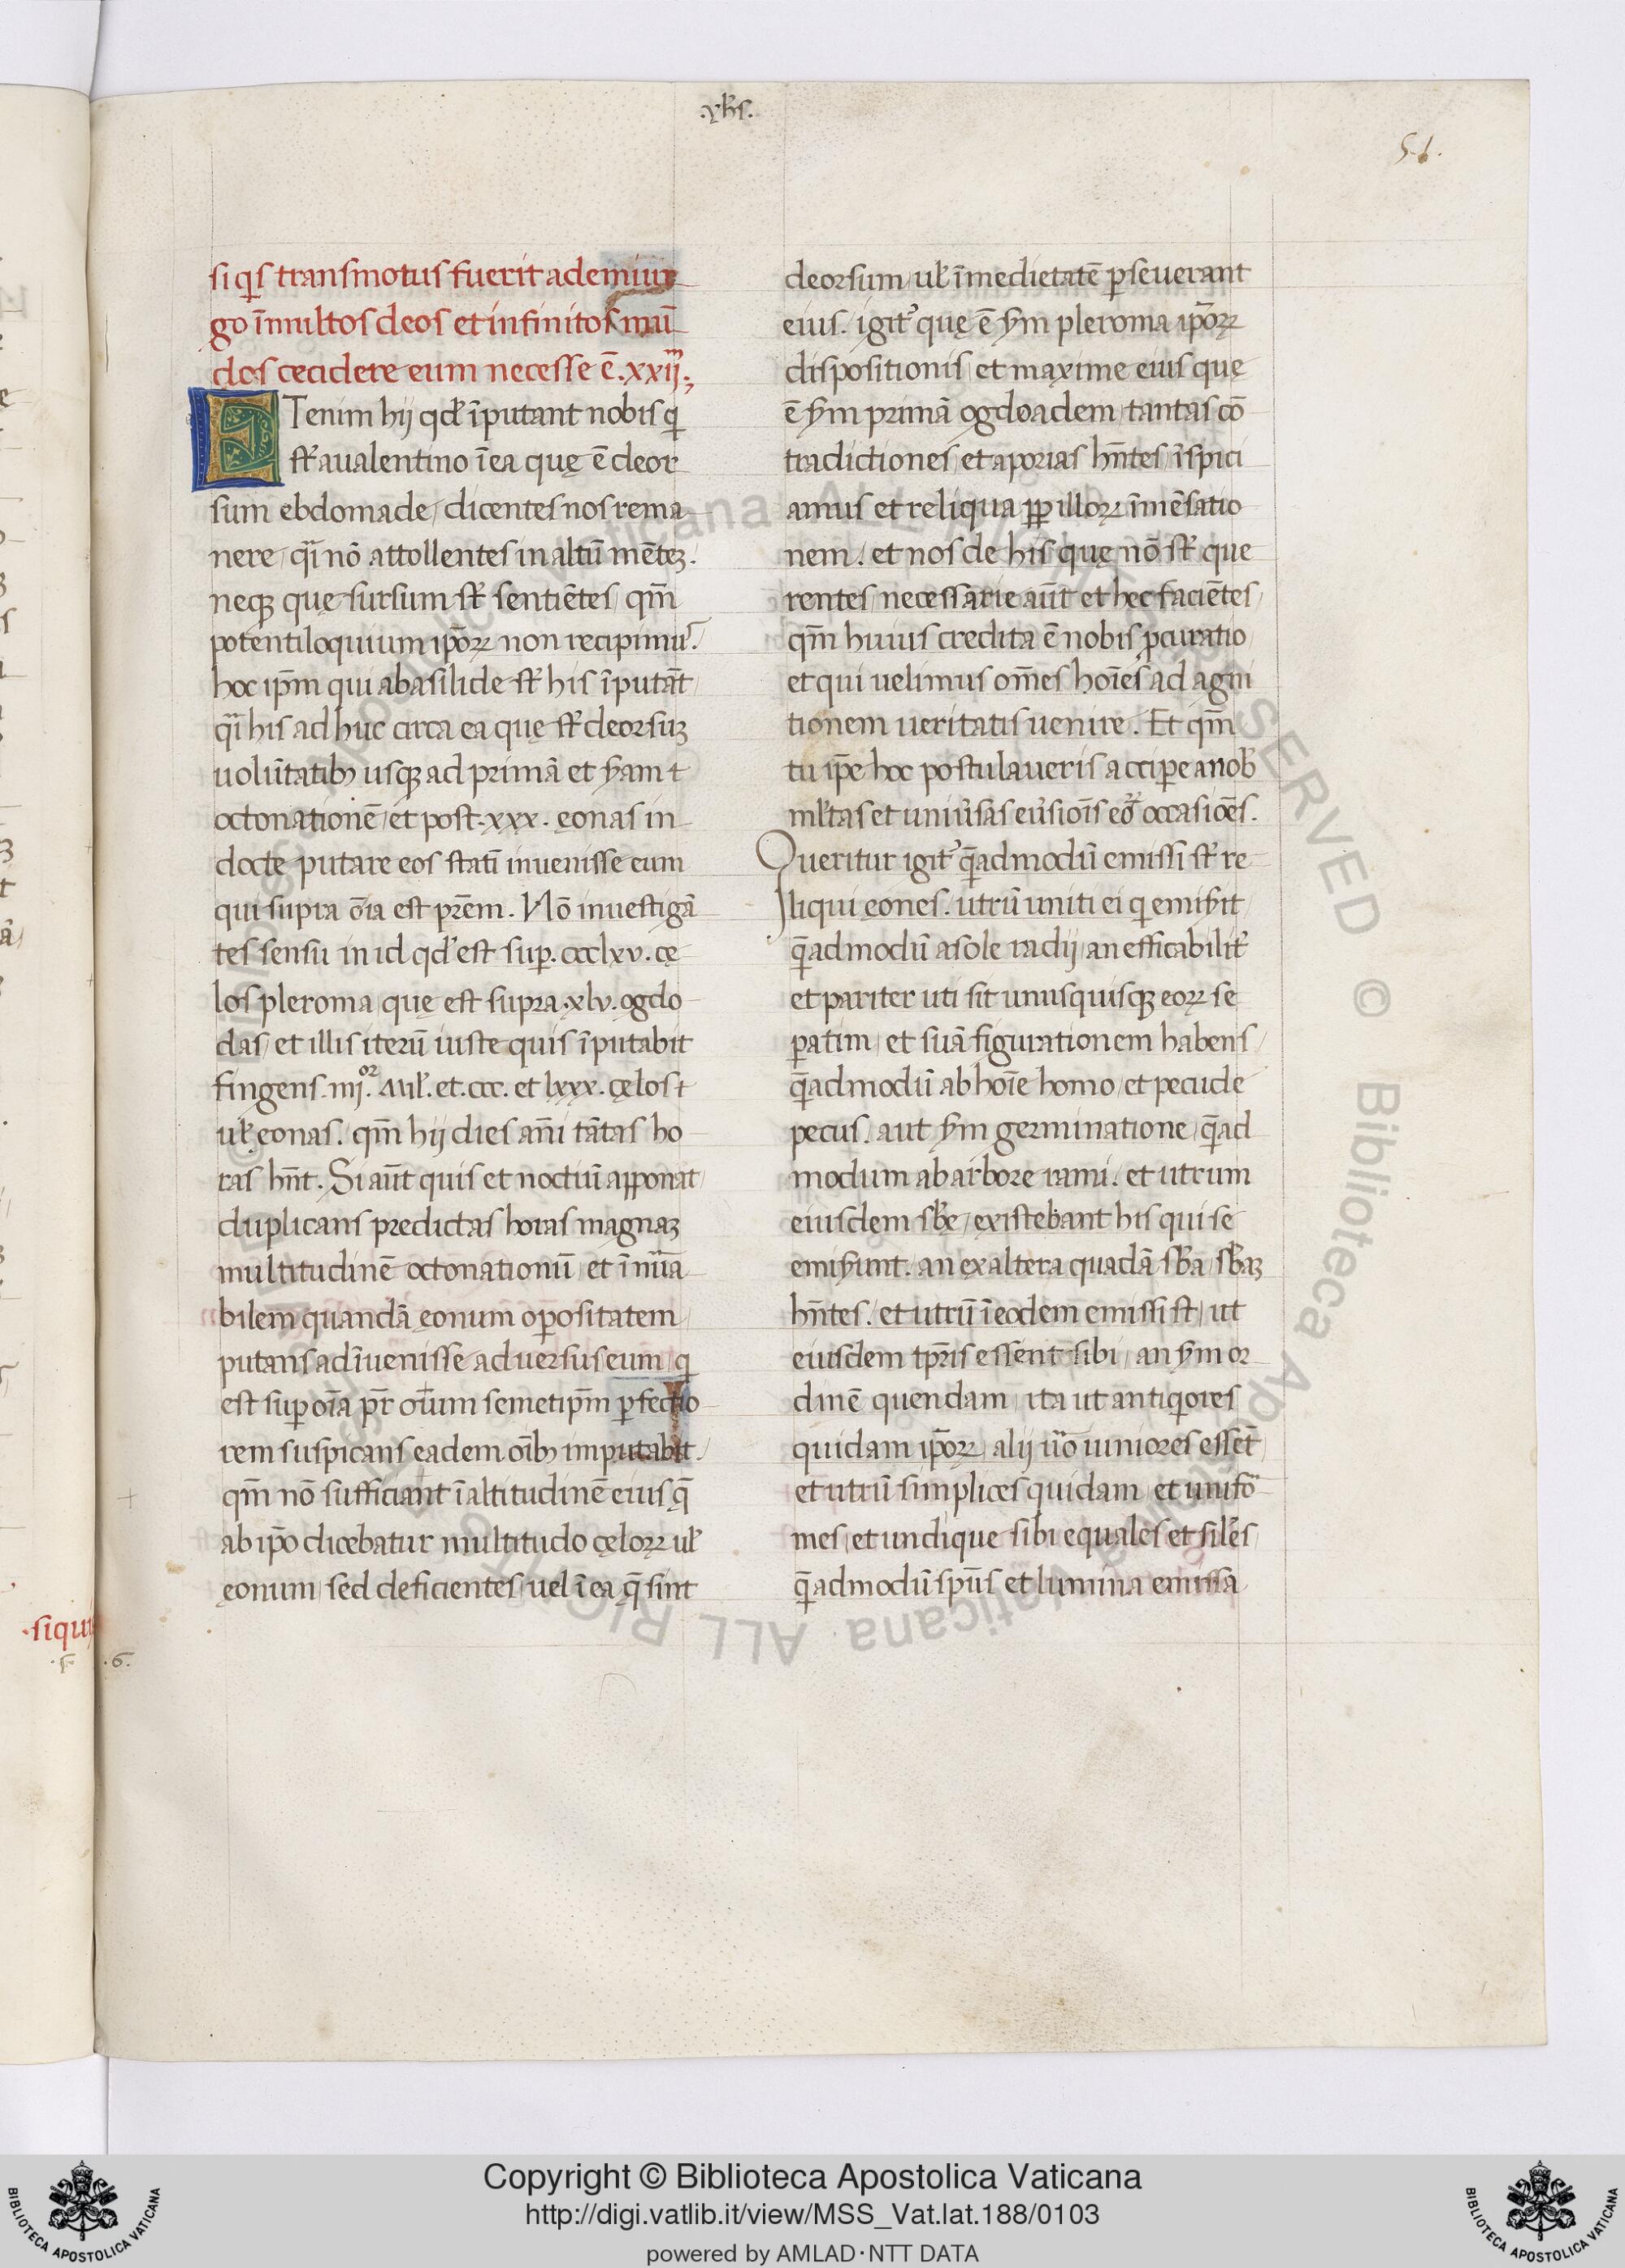 .yhs.
51.
si q̄s transmotus fuerit ademiur
go īmultos deos et infinitos mū
dos cecidere eum necesse ē .xxiij.
ETenim hij qđ īputant nobis q̄
st̄ a ualentino īea quę ē deor
sum ebdomade, dicentes nos rema
nere, qr̄ nō attollentes in altū mētē.
neq; quę sursum st̄ sentiētes, qm̄
potentiloquium ip̄oꝝ non recipimus.
hoc ip̄m qui abasilide st̄ his īputāt
qr̄ his ad huc circa ea quę st̄ deorsuꝫ
uolūtatib; usq; ad primā et s̄am
octonationē, et post .xxx. eonas in
docte putare eos statī inuenisse eum
qui supra ōia est pr̄em. Nō inuestigā
tes sensu in id qđ est suꝑ .ccclxv. cę
los pleroma, que est supra .xlv. ogdo
das, et illis iterū iuste quis īputabit
fingens .iiij.or Mił. et .ccc. et lxxx. cęlos
uł eonas. qm̄ hij dies anni tātas ho
ras hn̄t. Si aūt quis et noctiū apponat
duplicans predictas horas magnaꝫ
multitudinē octonationū, et īnūa
bilem quandā ęonum oꝑositatem
putans adīuenisse aduersus eum, q̄
est suꝑ oīa pr̄ oīum semetip̄m ꝑfectio
rem suspicans eadem oīb; imputabit.
qm̄ nō sufficiant ī altitudinē eius q̄
ab ip̄o dicebatur multitudo cęloꝝ uł
eonum, sed deficientes, uel ī ea q̄ sint
deorsum, uł īmedietatē ꝑseuerant
eius. igit᷑ quę ē s̄m pleroma ip̄oꝝ
dispositionis, et maxime eius quę
ē s̄m primā ogdoadem, tantas cō
tradictiones, et aporias hn̄tes, īspici
amus et reliqua ꝓꝑ illoꝝ īmēsatio
nem. et nos de his quę nō st̄ que
rentes, necessarie aūt et hec faciētes,
qm̄ huius credita ē nobis ꝓcuratio
et qui uelimus om̄es hoīes ad agni
tionem ueritatis uenire. Et qm̄
tu ip̄e hoc postulaueris acciꝑe a nob̄
młtas et uniūsas eūsiōis eoꝝ occasiōes.
Queritur igit᷑ q̄admodū emissi st̄ re
liqui eones. utrū uniti ei q̄ emis̄it
q̄admodū a sole radij, an efficabilit᷑
et pariter uti sit unusquisq; eoꝝ se
ꝑatim, et suā figurationem habens,
q̄admodū ab hoīe homo, et pecude
pecus. aut s̄m germinatione, q̄ad
modum ab arbore rami. et utrum
eiusdem sb̄e, existebant his qui se
emis̄unt. an ex altera quadā sb̄a sb̄aꝫ
hn̄tes. et utrū ī eodem emissi st̄, ut
eiusdem tp̄ris essent sibi, an s̄m or
dinē quendam, ita ut antiq̄ores
quidam ip̄oꝝ, alij ūo iuniores essēt
et utrū simplices quidam, et unifo
mes, et undique sibi equales et siłes,
q̄admodū sp̄us et lumina emissa
·siqui
Copyright © Biblioteca Apostolica Vaticana
http://digi.vatlib.it/view/MSS_Vat.lat.188/0103
powered by AMLAD·NTT DATA
BIBLIOTECA APOSTOLICA VATICANA
BIBLIOTECA APOSTOLICA VATICANA
© Biblioteca Apostolica Vaticana ALL RIGHTS RESERVED